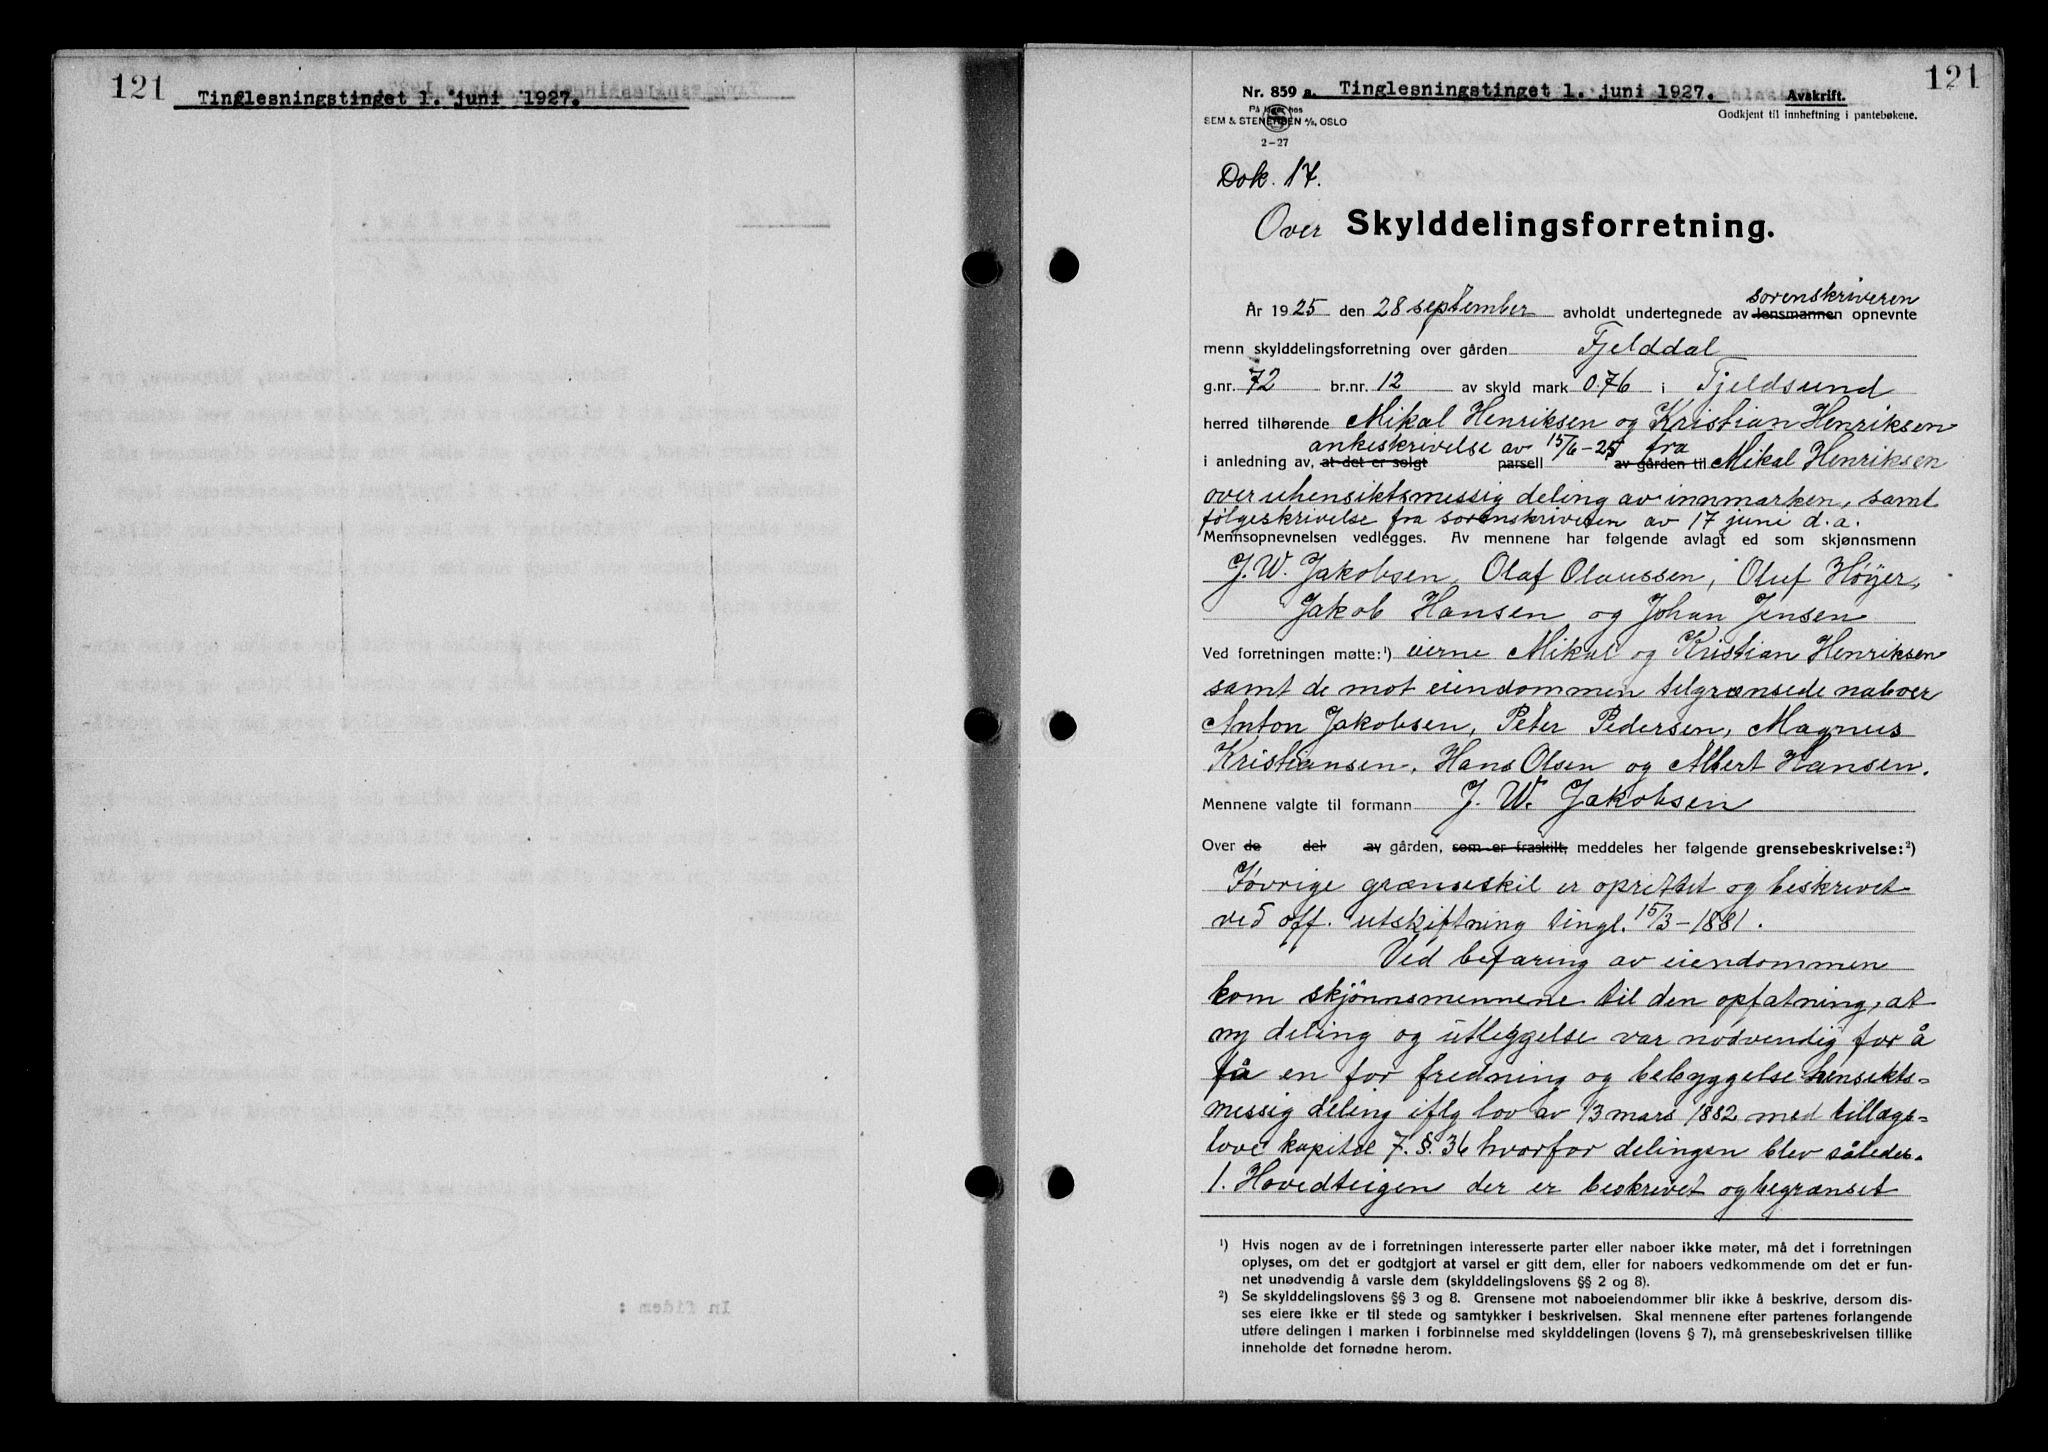 121
Tinglesningstinget 1. juni 1927.
121
Nr. 859 a. Tinglesningstinget 1. juni 1927. Avskrift.
På lager hos
SEM & STENERSEN A/S, OSLO
Godkjent til innheftning i pantebøkene.
2-27
Dok. 17.
Over Skylddelingsforretning.
sorenskriveren
År 1925 den 28 september avholdt undertegnede av lensmannen opnevnte
menn skylddelingsforretning over gården Fjelddal
g.nr. 72 br.nr. 12 av skyld mark 0.76 i Tjeldsund
herred tilhørende Mikal Henriksen og Kristian Henriksen
ankeskrivelse av 15/6-25 fra
i anledning av, at det er solgt parsell av gården til Mikal Henriksen
over uhensiktsmessig deling av innmarken, samt
følgeskrivelse fra sorenskriveren av 17 juni d.a.
Mennsopnevnelsen vedlegges. Av mennene har følgende avlagt ed som skjønnsmenn
J. W. Jakobsen, Olaf Olaussen, Oluf Höyer,
Jakob Hansen og Johan Jensen
Ved forretningen møtte:¹) eierne Mikal og Kristian Henriksen
samt de mot eiendommen tilgrænsede naboer
Anton Jakobsen, Peter Pedersen, Magnus
Kristiansen, Hans Olsen og Albert Hansen.
Mennene valgte til formann J. W. Jakobsen
Over de del av gården, som er fraskilt, meddeles her følgende grensebeskrivelse:²)
Iøvrige grænseskil er oprettet og beskrevet
ved off. utskiftning tingl. 15/3-1881.
Ved befaring av eiendommen
kom skjönnsmennene til den opfatning, at
ny deling og utleggelse var nödvendig for å
få en for fredning og bebyggelse hensikts=
messig deling iflg lov av 13 mars 1882 med tillægs=
love kapitel 7. §. 36 hvorfor delingen blev således.
1. Hovedteigen der er beskrevet og begrænset
¹) Hvis nogen av de i forretningen interesserte parter eller naboer ikke møter, må det i forretningen
oplyses, om det er godtgjort at varsel er gitt dem, eller for naboers vedkommende om det er fun-
net unødvendig å varsle dem (skylddelingslovens §§ 2 og 8).
²) Se skylddelingslovens §§ 3 og 8. Grensene mot naboeiendommer blir ikke å beskrive, dersom dis-
ses eiere ikke er til stede og samtykker i beskrivelsen. Skal mennene efter partenes forlangende
utføre delingen i marken i forbinnelse med skylddelingen (lovens § 7), må grensebeskrivelsen tillike
inneholde det fornødne herom.